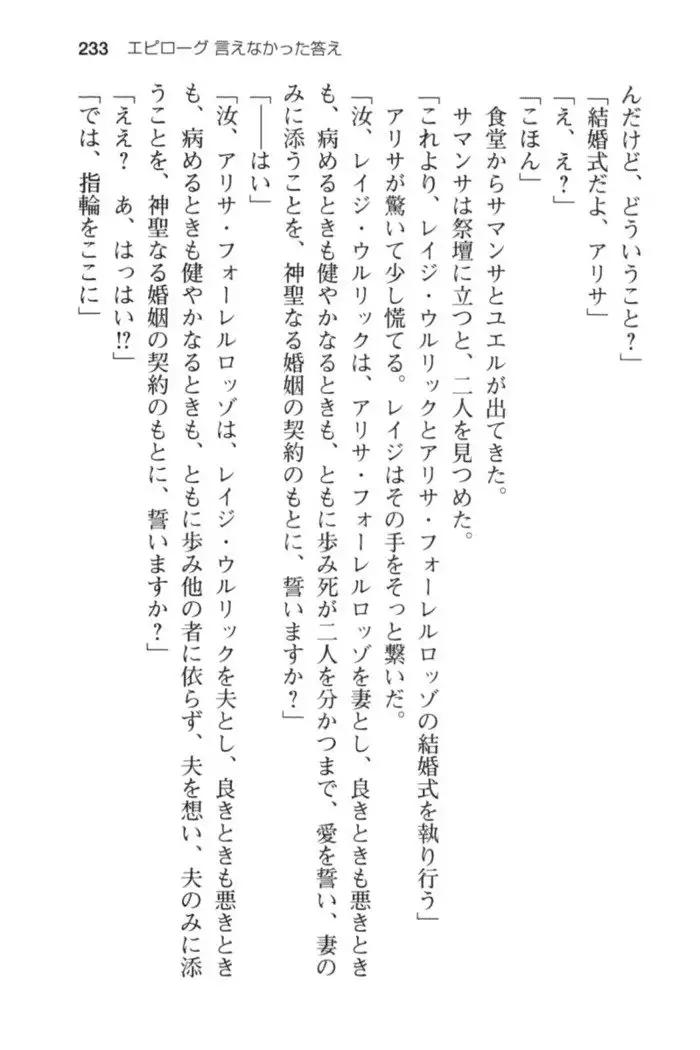 233 エピローグ 言えなかった答え
んだけど、どういうこと？」
「結婚式だよ、アリサ」
「え、え？」
「こほん」
食堂からサマンサとユエルが出てきた。
サマンサは祭壇に立つと、二人を見つめた。
「これより、レイジ・ウルリックとアリサ・フォーレルロッゾの結婚式を執り行う」
アリサが驚いて少し慌てる。レイジはその手をそっと繋いだ。
「汝、レイジ・ウルリックは、アリサ・フォーレルロッゾを妻とし、良きときも悪きとき
も、病めるときも健やかなるときも、ともに歩み死が二人を分かつまで、愛を誓い、妻の
みに添うことを、神聖なる婚姻の契約のもとに、誓いますか？」
「――はい」
「汝、アリサ・フォーレルロッゾは、レイジ・ウルリックを夫とし、良きときも悪きとき
も、病めるときも健やかなるときも、ともに歩み他の者に依らず、夫を想い、夫のみに添
うことを、神聖なる婚姻の契約のもとに、誓いますか？」
「ええ？　あ、はっはい!?」
「では、指輪をここに」